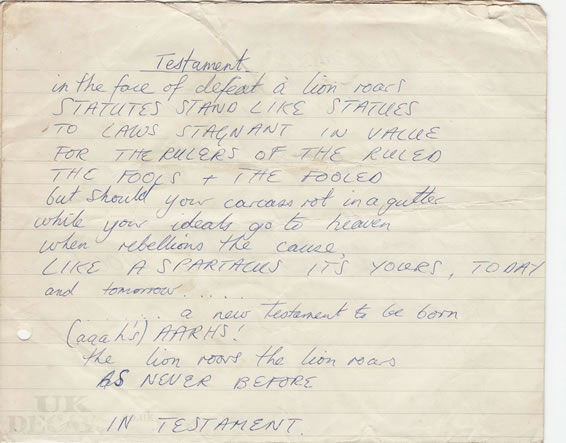 Testament.
in the face of defeat a lion roars
STATUTES STAND LIKE STATUES
TO LAWS STAGNANT IN VALUE
FOR THE RULERS OF THE RULED
THE FOOLS + THE FOOLED
but should your carcass rot in a gutter
while your ideals go to heaven
when rebellions the cause,
LIKE A SPARTACUS IT'S YOURS, TODAY
and tomorrow.....
...... a new Testament to be born
(aaah's) AARHS!
the lion roars the lion roars
AS NEVER BEFORE
IN TESTAMENT.
UK
DECAY.co.uk